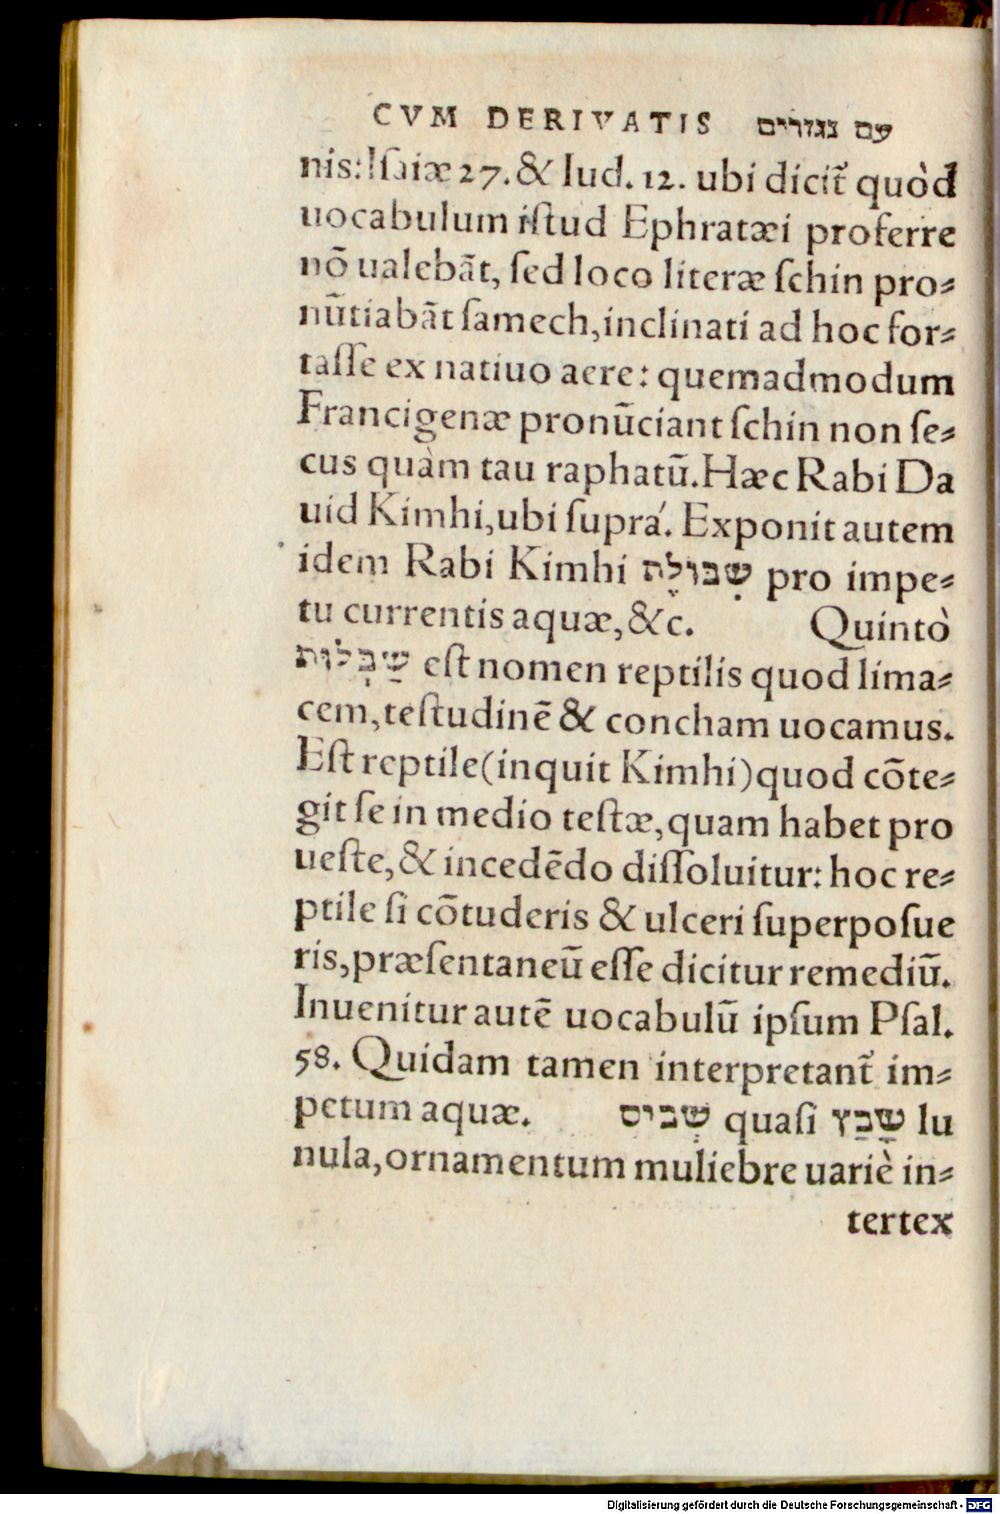 CVM DERIVATIS עם נגזרים
nis: Isaiæ 27. & Iud. 12. ubi dicit᷑ quòd
uocabulum istud Ephratæi proferre
nō ualebāt, sed loco literæ schin pro⸗
nūtiabāt samech, inclinati ad hoc for⸗
tasse ex natiuo aere: quemadmodum
Francigenæ pronūciant schin non se⸗
cus quàm tau raphatū. Hæc Rabi Da
uid Kimhi, ubi supra. Exponit autem
idem Rabi Kimhi שִבוּלֶת pro impe⸗
tu currentis aquæ, &c. Quintò
שַׁבְּלוּת est nomen reptilis quod lima⸗
cem, testudinē & concham uocamus.
Est reptile (inquit Kimhi) quod cōte⸗
git se in medio testæ, quam habet pro
ueste, & incedēdo dissoluitur: hoc re⸗
ptile si cōtuderis & ulceri superposue
ris, præsentaneū esse dicitur remediū.
Inuenitur autē uocabulū ipsum Psal.
58. Quidam tamen interpretant᷑ im⸗
petum aquæ. שְׁבִיס quasi שָׁבַץ lu
nula, ornamentum muliebre uariè in⸗
tertex
Digitalisierung gefördert durch die Deutsche Forschungsgemeinschaft - DFG